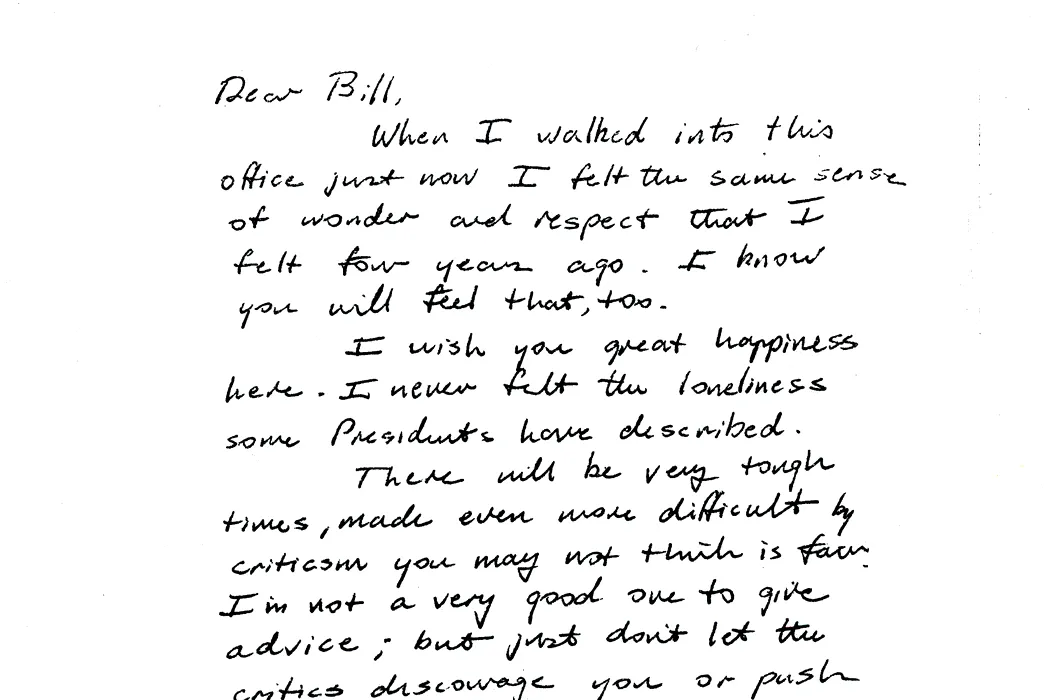 Dear Bill,
When I walked into this
office just now I felt the same sense
of wonder and respect that I
felt four years ago. I know
you will feel that, too.
I wish you great happiness
here. I never felt the loneliness
some Presidents have described.
There will be very tough
times, made even more difficult by
criticism you may not think is fair.
I'm not a very good one to give
advice; but just don't let the
critics discourage you or push